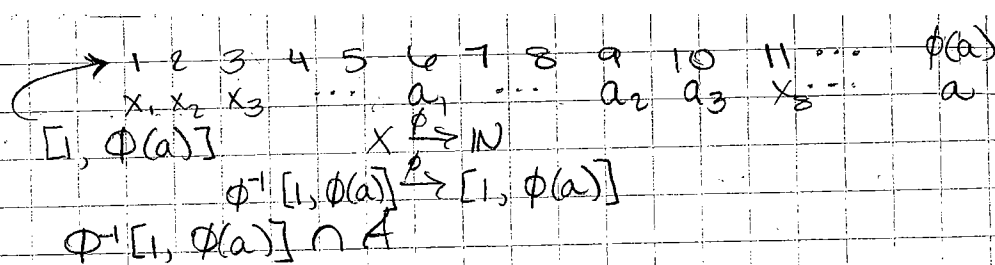 1 2 3 4 5 6 7 8 9 10 11 ... ϕ(a)
x₁ x₂ x₃ ... a₁ ... a₂ a₃ x₈ ... a
[1, ϕ(a)] X ϕ→ ℕ
ϕ⁻¹[1, ϕ(a)] ϕ→ [1, ϕ(a)]
ϕ⁻¹[1, ϕ(a)] ∩ A